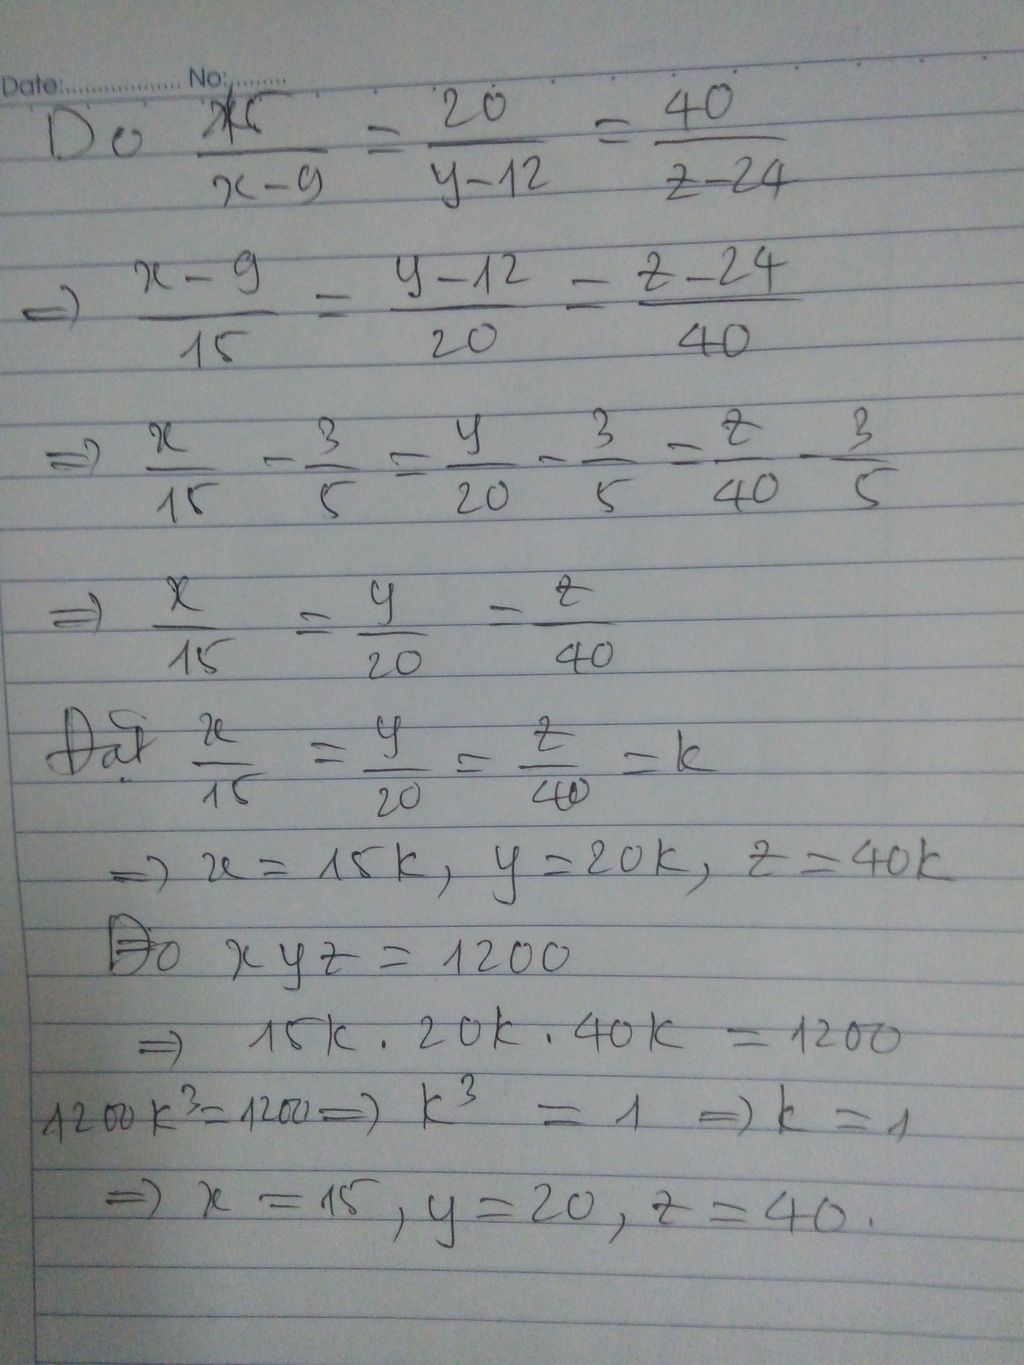 Date:.................... No:..........
Do 15/(x-9) = 20/(y-12) = 40/(z-24)
=> (x-9)/15 = (y-12)/20 = (z-24)/40
=> x/15 - 3/5 = y/20 - 3/5 = z/40 - 3/5
=> x/15 = y/20 = z/40
Đặt x/15 = y/20 = z/40 = k
=> x = 15k, y = 20k, z = 40k
Do xyz = 1200
=> 15k . 20k . 40k = 1200
1200k³ = 1200 => k³ = 1 => k = 1
=> x = 15, y = 20, z = 40.